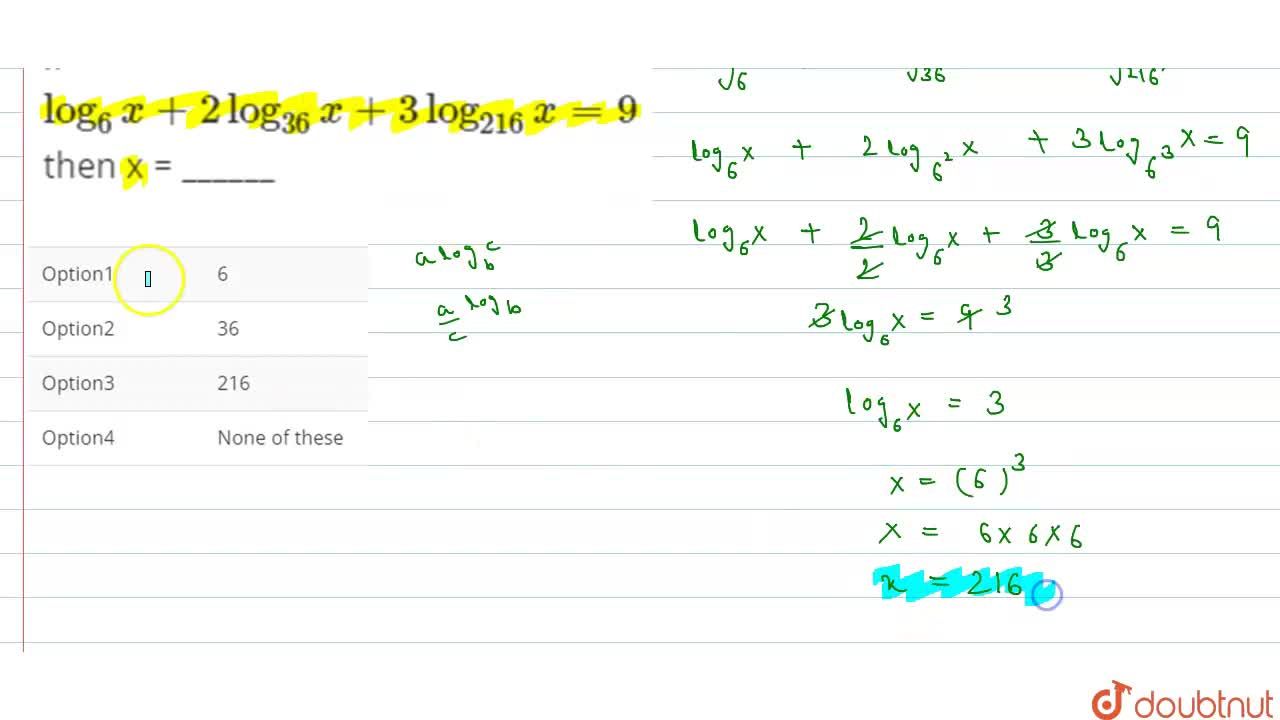 √6 √36 √216
log₆ x + 2 log₃₆ x + 3 log₂₁₆ x = 9
then x = ______
Option1 6
Option2 36
Option3 216
Option4 None of these
a log_b c
a/c log b
log₆ x + 2 log_6² x + 3 log_6³ x = 9
log₆ x + 2/2 log₆ x + 3/3 log₆ x = 9
3 log₆ x = 9 3
log₆ x = 3
x = (6)³
x = 6 × 6 × 6
x = 216
doubtnut